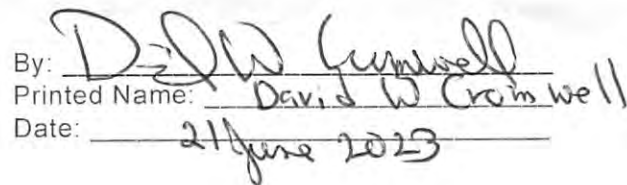 By: David W Cromwell
Printed Name: David W Cromwell
Date: 21 June 2023